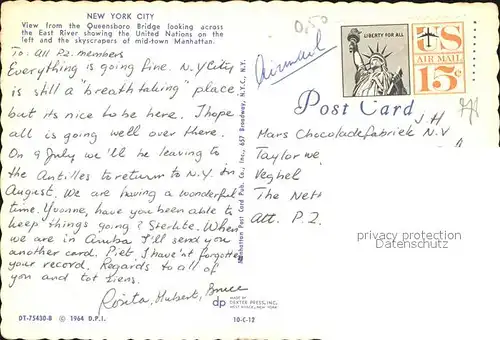 NEW YORK CITY
View from the Queensboro Bridge looking across
the East River showing the United Nations on the
left and the skyscrapers of mid-town Manhattan.
To: all P.2. members
Everything is going fine. N.Y. City
is still a "breath taking" place
but its nice to be here. I hope
all is going well over there.
On 9 July we'll be leaving to
the Antilles to return to N.Y. in
August. We are having a wonderful
time. Yvonne, have you been able to
keep things going? Sterkte. When
we are in Aruba I'll send you
another card. Piet I haven't forgotten
your record. Regards to all of
you and tot ziens.
Rosita, Hubert, Bruce
DT-75430-B © 1964 D.P.I.
Manhattan Post Card Pub. Co., Inc., 657 Broadway, N.Y.C., N.Y.
dp MADE BY
DEXTER PRESS, INC.
WEST NYACK, NEW YORK
10-C-12
0,50
Airmail
LIBERTY FOR ALL
US
AIR MAIL
15¢
Post Card
Mars Chocoladefabriek N.V
Taylor we
Veghel
The Neth
Att. P.2.
privacy protection
Datenschutz